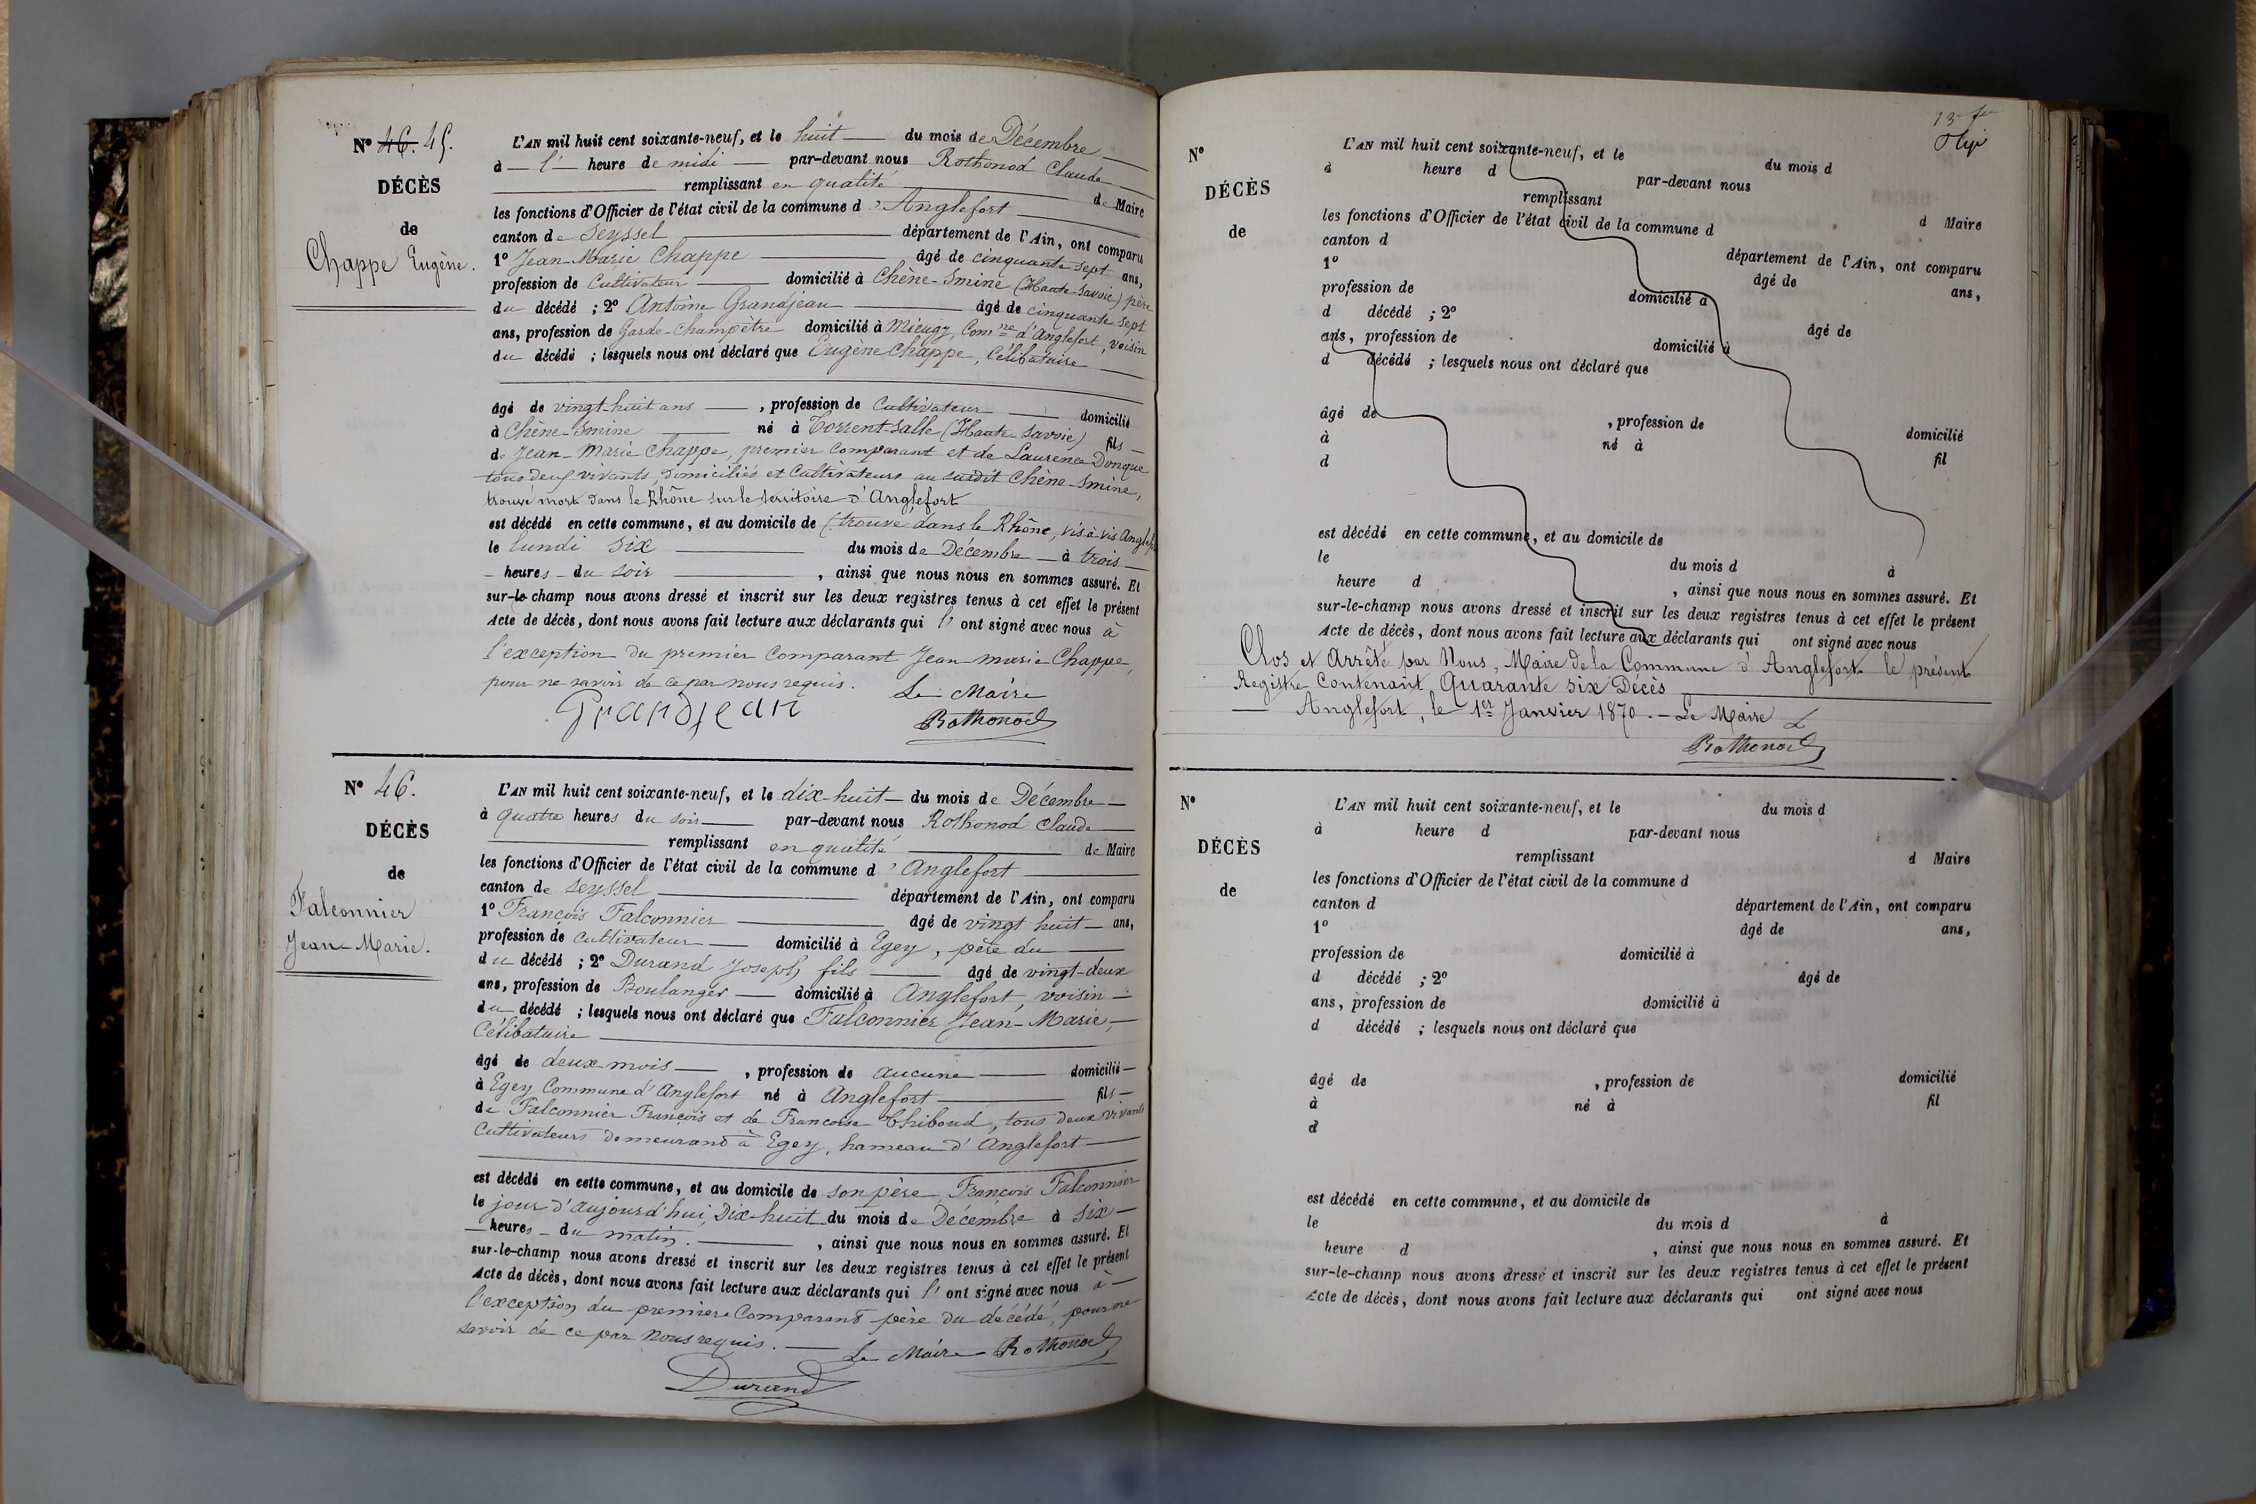 N° 46. 45.
DÉCÈS
de
Chappe Eugène.
L'AN mil huit cent soixante-neuf, et le huit du mois de Décembre
à l' heure de midi par-devant nous Rothonod Claude
remplissant en qualité de Maire
les fonctions d'Officier de l'état civil de la commune d'Anglefort
canton de Seyssel département de l'Ain, ont comparu
1° Jean-Marie Chappe âgé de cinquante sept ans,
profession de Cultivateur domicilié à Chêne-Smine (Haute Savoie) père
du décédé ; 2° Antoine Grandjean âgé de cinquante sept
ans, profession de Garde-Champêtre domicilié à Mieugy, Comne d'Anglefort, voisin
du décédé ; lesquels nous ont déclaré que Eugène Chappe, Célibataire
âgé de vingt-huit ans , profession de Cultivateur domicilié
à Chêne-Smine né à Corrent-Salle (Haute-Savoie) fils
de Jean-Marie Chappe, premier Comparant et de Laurence Donque
tous deux vivants, Domiciliés et Cultivateurs au susdit Chêne-Smine,
trouvé mort dans le Rhône sur le territoire d'Anglefort
est décédé en cette commune, et au domicile de (trouvé dans le Rhône, vis à vis
le lundi six du mois de Décembre à trois
heures du soir , ainsi que nous nous en sommes assuré. Et
sur-le-champ nous avons dressé et inscrit sur les deux registres tenus à cet effet le présent
Acte de décès, dont nous avons fait lecture aux déclarants qui l' ont signé avec nous à
l'exception du premier Comparant Jean-marie Chappe,
pour ne savoir de ce par nous requis. Le Maire
Grandjean Rothonod
N° 46.
DÉCÈS
de
Falconnier
Jean-Marie.
L'AN mil huit cent soixante-neuf, et le dix-huit du mois de Décembre
à quatre heures du soir par-devant nous Rothonod Claude
remplissant en qualité de Maire
les fonctions d'Officier de l'état civil de la commune d'Anglefort
canton de Seyssel département de l'Ain, ont comparu
1° François Falconnier âgé de vingt huit ans,
profession de Cultivateur domicilié à Egey, père du
du décédé ; 2° Durand Joseph, fils âgé de vingt-deux
ans, profession de Boulanger domicilié à Anglefort, voisin
du décédé ; lesquels nous ont déclaré que Falconnier Jean-Marie,
Célibataire
âgé de deux mois , profession de aucune domicilié
à Egey Commune d'Anglefort né à Anglefort fils
de Falconnier François et de Francoise Thiboud, tous deux vivants
Cultivateurs demeurant à Egey, hameau d'Anglefort
est décédé en cette commune, et au domicile de son père, François Falconnier
le jour d'aujourd'hui, Dix-huit du mois de Décembre à six
heures du matin. , ainsi que nous nous en sommes assuré. Et
sur-le-champ nous avons dressé et inscrit sur les deux registres tenus à cet effet le présent
Acte de décès, dont nous avons fait lecture aux déclarants qui l' ont signé avec nous à
l'exception du premier Comparant père du décédé, pour ne
savoir de ce par nous requis. Le Maire Rothonod
Durand
13e fe
N°
DÉCÈS
de
L'AN mil huit cent soixante-neuf, et le du mois d
à heure d par-devant nous
remplissant d Maire
les fonctions d'Officier de l'état civil de la commune d
canton d département de l'Ain, ont comparu
1° âgé de ans,
profession de domicilié à
d décédé ; 2° âgé de
ans, profession de domicilié à
d décédé ; lesquels nous ont déclaré que
âgé de , profession de domicilié
à né à fil
d
est décédé en cette commune, et au domicile de
le du mois d à
heure d , ainsi que nous nous en sommes assuré. Et
sur-le-champ nous avons dressé et inscrit sur les deux registres tenus à cet effet le présent
Acte de décès, dont nous avons fait lecture aux déclarants qui ont signé avec nous
Clos et Arrêté par Nous, Maire de la Commune d'Anglefort le présent
Registre Contenant Quarante six Décès
Anglefort, le 1er Janvier 1870. - Le Maire
Rothonod
N°
DÉCÈS
de
L'AN mil huit cent soixante-neuf, et le du mois d
à heure d par-devant nous
remplissant d Maire
les fonctions d'Officier de l'état civil de la commune d
canton d département de l'Ain, ont comparu
1° âgé de ans,
profession de domicilié à
d décédé ; 2° âgé de
ans, profession de domicilié à
d décédé ; lesquels nous ont déclaré que
âgé de , profession de domicilié
à né à fil
d
est décédé en cette commune, et au domicile de
le du mois d à
heure d , ainsi que nous nous en sommes assuré. Et
sur-le-champ nous avons dressé et inscrit sur les deux registres tenus à cet effet le présent
Acte de décès, dont nous avons fait lecture aux déclarants qui ont signé avec nous